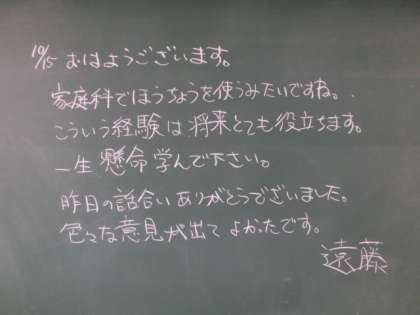 10/15 おはようございます。
家庭科でほうちょうを使うみたいですね。
こういう経験は将来とても役立ちます。
一生懸命学んで下さい。
昨日の話合いありがとうございました。
色々な意見が出てよかったです。
遠藤